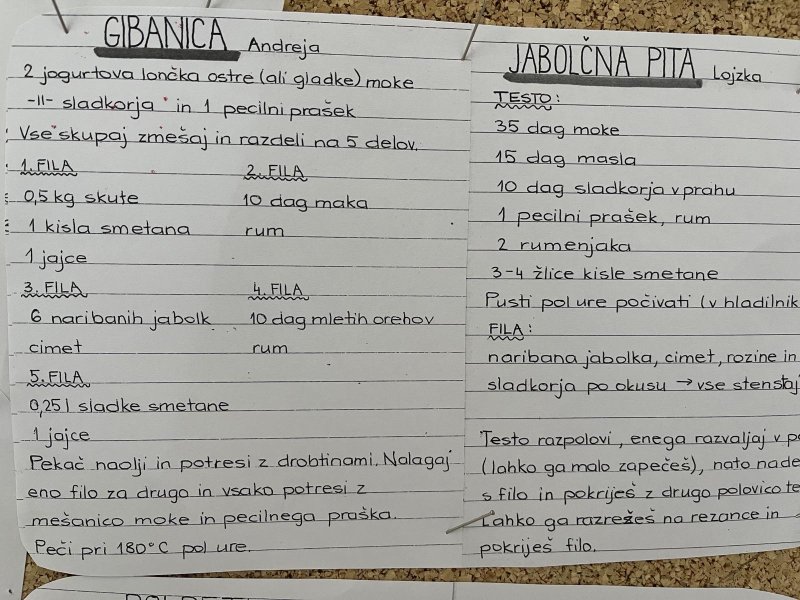 GIBANICA Andreja
2 jogurtova lončka ostre (ali gladke) moke
-11- sladkorja in 1 pecilni prašek
Vse skupaj zmešaj in razdeli na 5 delov.
1. FILA
0,5 kg skute
1 kisla smetana
1 jajce
2. FILA
10 dag maka
rum
3. FILA
6 naribanih jabolk
cimet
4. FILA
10 dag mletih orehov
rum
5. FILA
0,25 l sladke smetane
1 jajce
Pekač naolji in potresi z drobtinami. Nalagaj
eno filo za drugo in vsako potresi z
mešanico moke in pecilnega praška.
Peči pri 180°C pol ure.
JABOLČNA PITA Lojzka
TESTO:
35 dag moke
15 dag masla
10 dag sladkorja v prahu
1 pecilni prašek, rum
2 rumenjaka
3-4 žlice kisle smetane
Pusti pol ure počivati (v hladilnik
FILA:
naribana jabolka, cimet, rozine in
sladkorja po okusu → vse stenstaj
Testo razpolovi, enega razvaljaj v p
(lahko ga malo zapečeš), nato nade
s filo in pokriješ z drugo polovico te
Lahko ga razrežeš na rezance in
pokriješ filo.